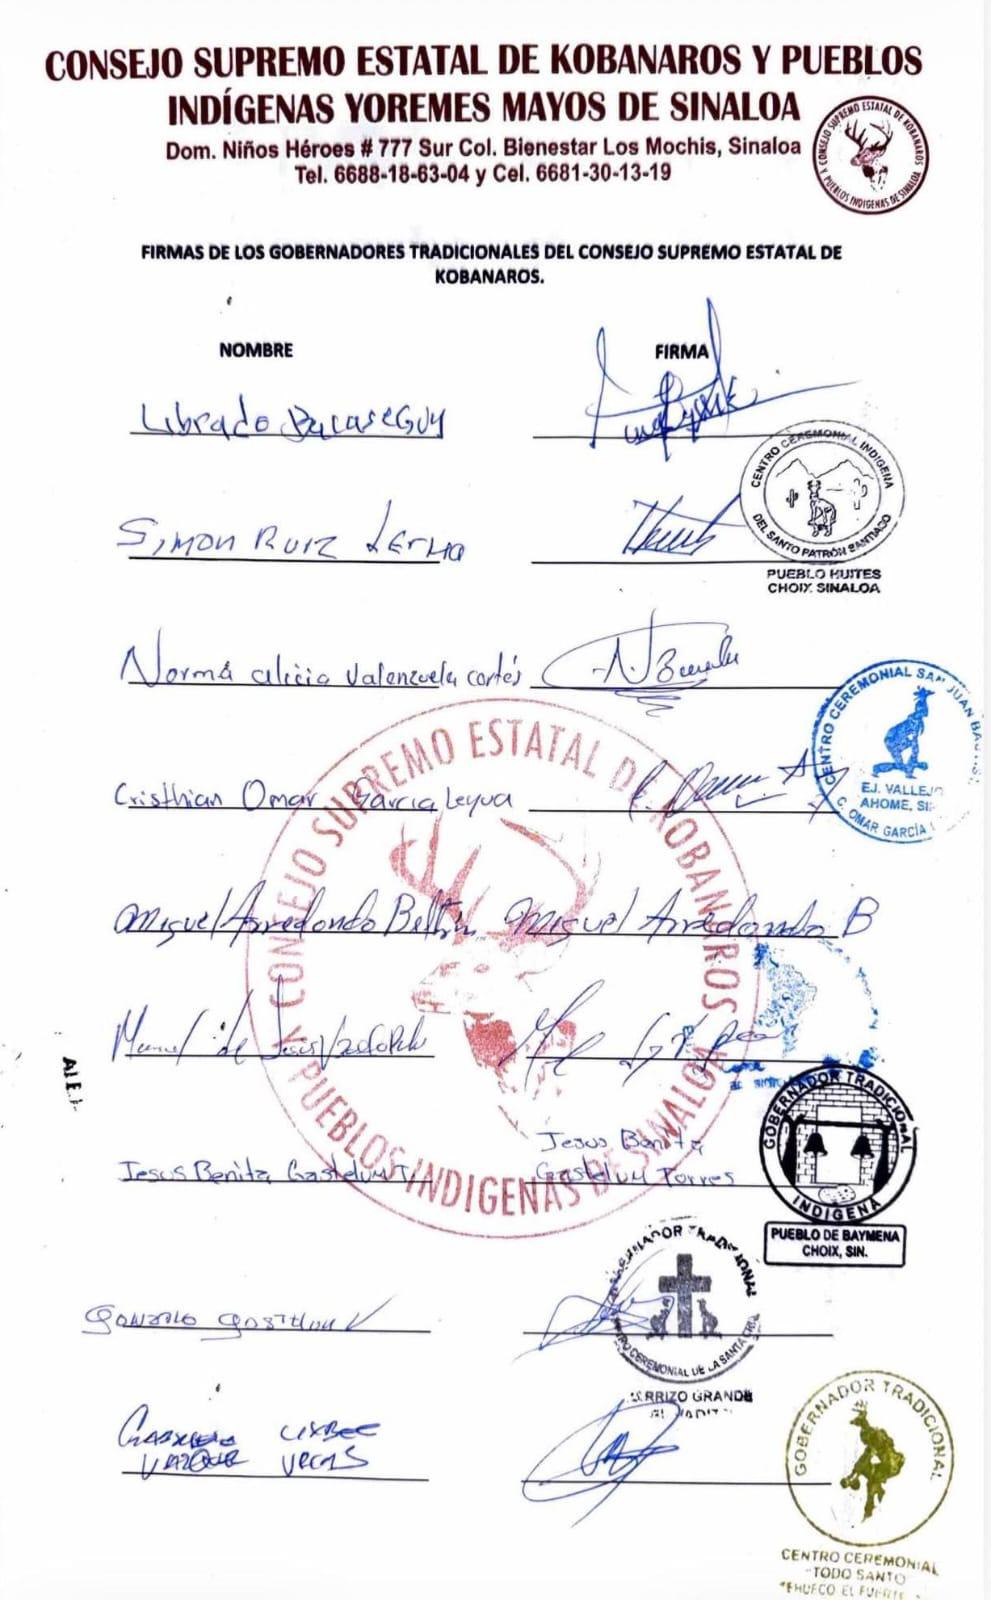 CONSEJO SUPREMO ESTATAL DE KOBANAROS Y PUEBLOS
INDÍGENAS YOREMES MAYOS DE SINALOA
Dom. Niños Héroes # 777 Sur Col. Bienestar Los Mochis, Sinaloa
Tel. 6688-18-63-04 y Cel. 6681-30-13-19
CONSEJO SUPREMO ESTATAL DE KOBANAROS
Y PUEBLOS INDIGENAS DE SINALOA
FIRMAS DE LOS GOBERNADORES TRADICIONALES DEL CONSEJO SUPREMO ESTATAL DE
KOBANAROS.
NOMBRE FIRMA
Librado BacaseGuy
CENTRO CEREMONIAL INDIGENA
DEL SANTO PATRÓN SANTIAGO
PUEBLO HUITES
CHOIX SINALOA
Simon Ruiz Lerma
Norma alicia Valenzuela cortés
CENTRO CEREMONIAL SAN JUAN
EJ. VALLEJO
AHOME,
C. OMAR GARCÍA
Cristhian Omar Garcia Leyva
CONSEJO SUPREMO ESTATAL DE KOBANAROS
Y PUEBLOS INDIGENAS DE SINALOA
Miguel Arredondo Beltrán Miguel Arredondo B
Manuel de Jesús
Jesus Benita Gastelum T. Jesus Benita
Gastelum Torres
GOBERNADOR TRADICIONAL
INDIGENA
PUEBLO DE BAYMENA
CHOIX, SIN.
GOBERNADOR TRADICIONAL
CENTRO CEREMONIAL DE LA SANTA CRUZ
GRANDE
Gonzalo
GOBERNADOR TRADICIONAL
CENTRO CEREMONIAL
TODO SANTO
TEHUECO EL FUERTE